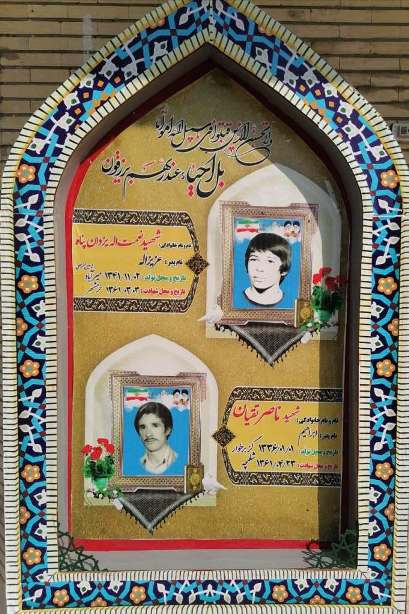 ولا تحسبن الذین قتلوا فی سبیل الله امواتا
بل احیاء عند ربهم یرزقون
نام و نام خانوادگی: شهید نعمت اله یزدان پناه
نام پدر: عزیزاله
تاریخ و محل تولد: ۱۳۴۱.۱۱.۰۲
تاریخ و محل شهادت: ۱۳۶۱.۰۳.۰۳ خرمشهر
نام و نام خانوادگی: شهید ناصر نقیان
نام پدر: ابراهیم
تاریخ و محل تولد: ۱۳۳۶.۰۱.۰۱ گز برخوار
تاریخ و محل شهادت: ۱۳۶۱.۰۴.۲۳ شلمچه